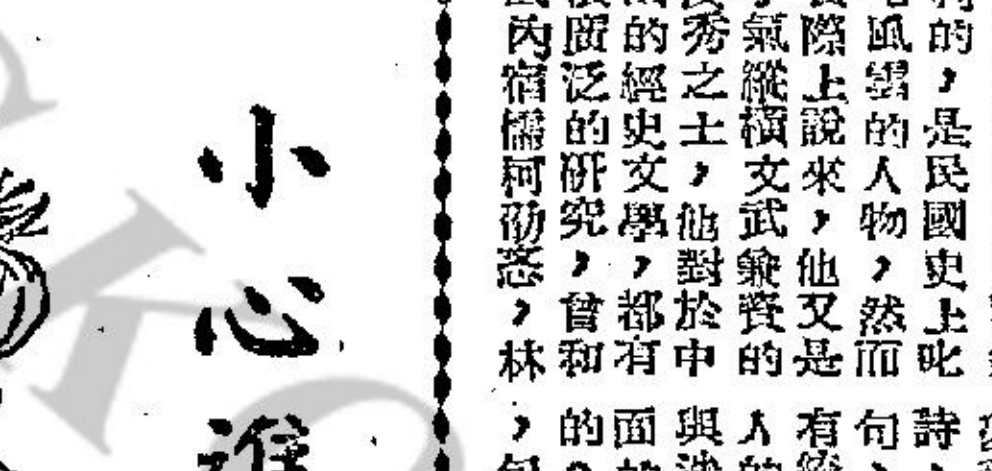 的，是民國史上叱
風雲的人物，然而
際上說來，他又是
氣縱橫文武兼資的
秀之士，他對於中
的經史文學，都有
廣泛的研究，曾和
內宿儒柯劭忞，林
詩
句
有
人
與
面
的
，
小心